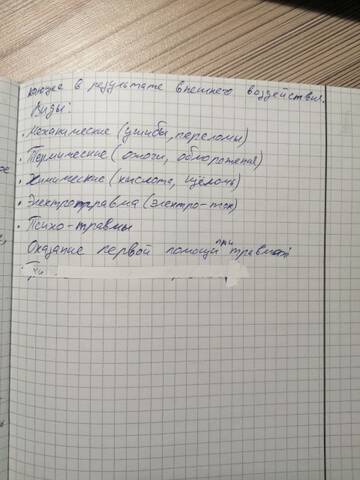 ающие в результате внешнего воздействия.
Виды:
• Механические (ушибы, переломы)
• Термические (ожоги, обморожения)
• Химические (кислота, щёлочь)
• Электротравма (электро-ток)
• Психо-травмы
Оказание первой помощи при травмах